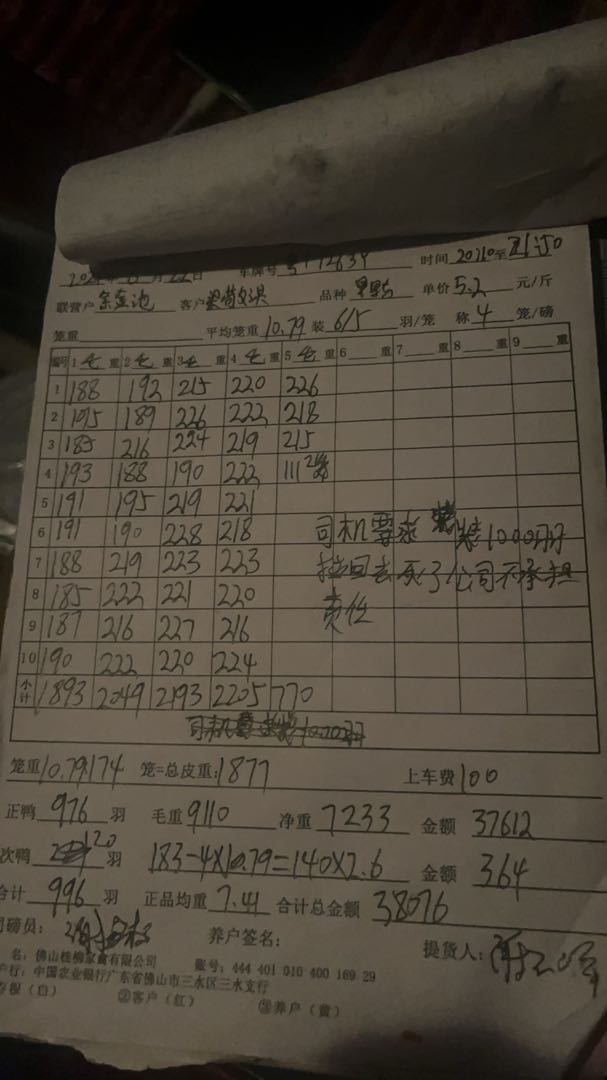 日 车牌号 时间 20210至
联营户 余金池 客户 品种 单价 5.2 元/斤
笼重 平均笼重 10.79 装 6/5 羽/笼 称 4 笼/磅
编号 1 毛 重 2 毛 重 3 毛 重 4 毛 重 5 毛 重 6 重 7 重 8 重 9 重
1 188 192 215 220 226
2 195 189 226 222 218
3 185 216 224 219 215
4 193 188 190 222 111 2笼
5 191 195 219 221
6 191 190 228 218 司机要求 装1000羽
7 188 219 223 223 拉回去死了公司不承担
8 185 222 221 220 责任
9 187 216 227 216
10 190 222 220 224
小计 1893 2049 2193 2205 770
笼重 10.79 174 笼=总皮重: 1877 上车费 100
正鸭 976 羽 毛重 9110 净重 7233 金额 37612
次鸭 20 羽 183-4×10.79=140×2.6 金额 364
合计 996 羽 正品均重 7.41 合计总金额 38076
司磅员: 养户签名: 提货人:
名: 佛山桂柳家禽有限公司 账号: 444 401 010 400 169 29
户行: 中国农业银行广东省佛山市三水区三水支行
存根(白) ②客户(红) ③养户(黄)